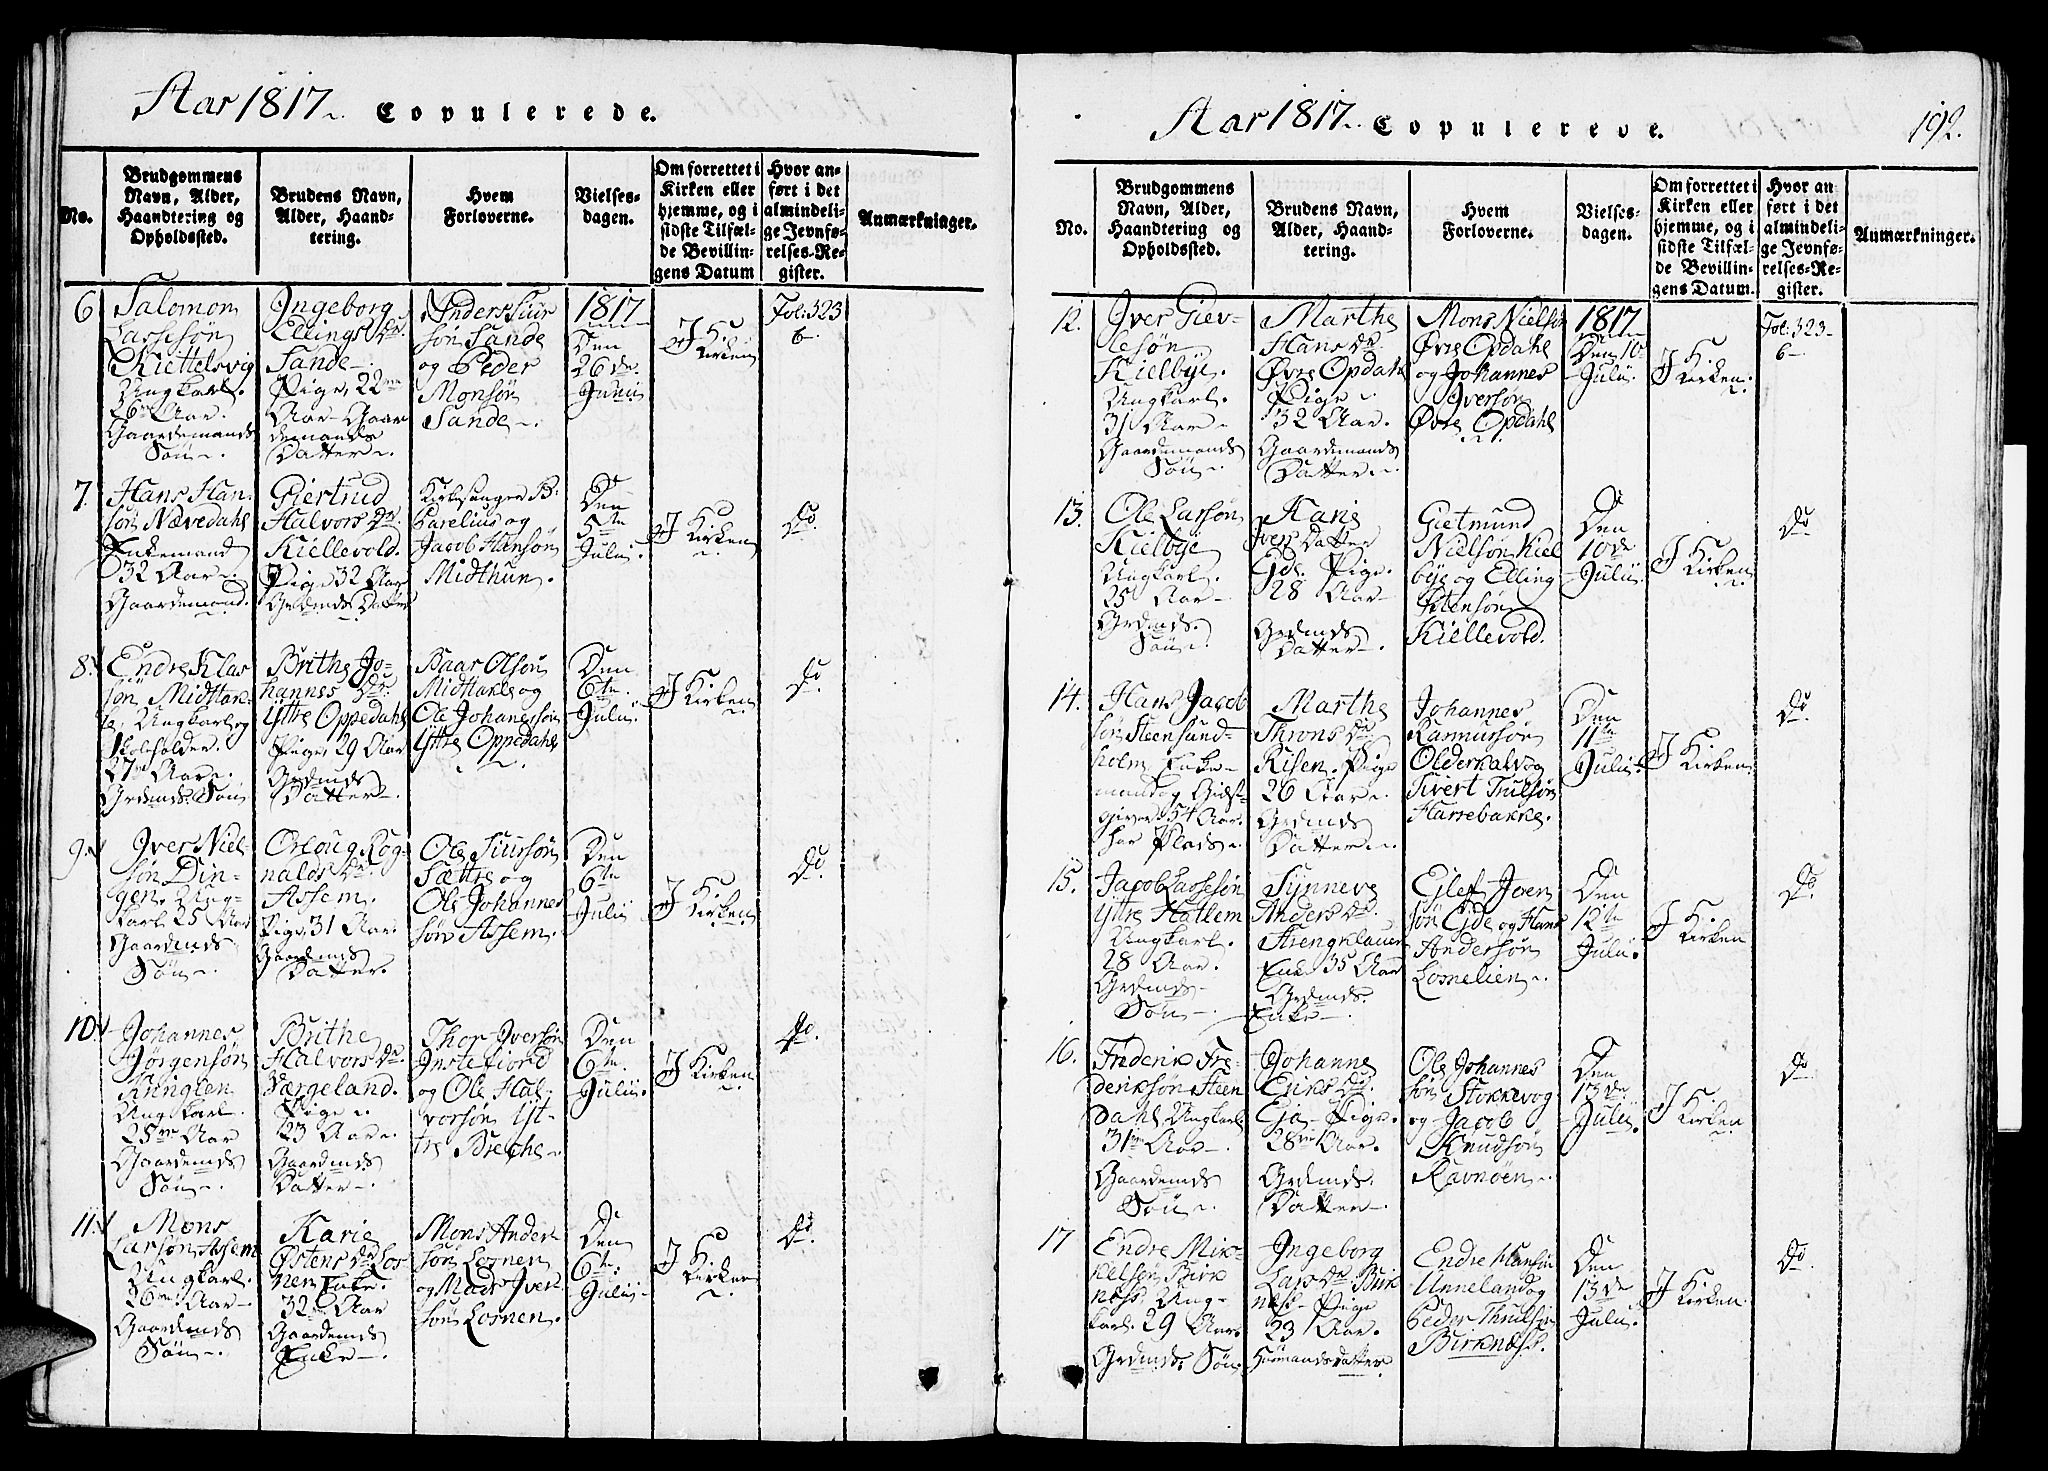 Aar 1817. Copulerede.
No.
Brudgommens
Navn, Alder,
Haandtering og
Opholdssted.
Brudens Navn,
Alder, Haand-
tering.
Hvem
Forloverne.
Vielses-
dagen.
Om forrettet i
Kirken eller
hjemme, og i
sidste Tilfæl-
de Bevillin-
gens Datum
Hvor an-
ført i det
almindeli-
ge Jevnfø-
relses-Re-
gister.
Anmærkninger.
6
Salomon
Lassesøn
Kiettelsvig
Ungkarl.
26 Aar.
Gaardemands
Søn.
Ingeborg
Ellings Dr.
Sande
Pige, 22
Aar Gaar
demands
Datter.
Anders Siur
søn Sande
og Peder
Monsøn
Sande.
1817
Den
26de
Junii
I
Kirken
Fol: 323
6.
7.
Hans Han-
søn Nævedahl
Enkemand
32 Aar.
Gaardemand.
Giertrud
Halvors Dr.
Kiellevold.
Pige 32 Aar
Grdmds Datter
Kirkesanger B:
Parelius og
Jacob Hansøn
Midthun.
Den
5te
Julii
I
Kirken
Do.
8.
Endre Klas
søn Midttak-
le, Ungkarl og
Skoleholder.
27 Aar.
Grdmds. Søn
Brithe Jo-
hannes Dr.
Yttre Oppedahl
Pige, 29 Aar
Grdmds
Datter.
Baar Olsøn
Midttakle og
Ole Johanessøn
Yttre Oppedahl
Den
6te
Julii
I Kirken
Do.
9.
Iver Niel-
søn Din-
gen, Ung-
karl 25 Aar
Gaardmds
Søn.
Orloug Rog-
nalds Dr.
Assem.
Pige, 31 Aar.
Gaardmds
Datter.
Ole Siursøn
Sættre og
Ole Johannes
søn Assem.
Den
6te
Julii
I Kirken
Do.
10.
Johannes
Jørgensøn
Ringlen
Ungkarl.
25 Aar
Gaardemds
Søn.
Brithe
Halvors Dr.
Værgeland.
Pige
23 Aar.
Gaardmds
Datter.
Thor Iversøn
Instefiord
og Ole Hal-
vorsøn Yt-
tre Breche.
Den
6te
Julii
I Kirken
Do.
11.
Mons
Larsøn Assem
Ungkarl.
26 Aar
Gaardemds
Søn.
Karie
Østens Dr. Los
nen Enke.
32 Aar
Gaardemds
Enke.
Mons Ander
søn Losnen
og Mads Iver
søn Losnen.
Den
6te
Julii
I
Kirken
Do.
Aar 1817. Copulerede. 192.
No.
Brudgommens
Navn, Alder,
Haandtering og
Opholdssted.
Brudens Navn,
Alder, Haand-
tering.
Hvem
Forloverne.
Vielses-
dagen.
Om forrettet i
Kirken eller
hjemme, og i
sidste Tilfæl-
de Bevillin-
gens Datum.
Hvor an
ført i det
almindeli-
ge Jevnfø-
relses-Re-
gister.
Anmærkninger.
12.
Iver Giev-
lesøn
Kielbye.
Ungkarl.
31 Aar
Gaardemands
Søn.
Marthe
Hans Dr.
Øvre Opdahl
Pige
32 Aar.
Gaardemands
Datter.
Mons Nielsøn
Øvre Opdahl
og Johannes
Iversøn
Øvre Opdahl
1817
Den 10
Julii
I
Kirken.
Fol: 323
6
13.
Ole Larsøn
Kielbye
Ungkarl.
25 Aar
Grdmds
Søn.
Karie
Ivers Datter
Eide. Pige.
28 Aar
Grdmds
Datter.
Gietmund
Nielsøn Kiel
bye og Elling
Kiellevold.
Den
10de
Julii
I
Kirken
Do
14.
Hans Jacob
søn Steensund-
holm Enke-
mand og Giest-
giver. 54 Aar.
har Plads.
Marthe
Throns Dr.
Risen. Pige
26 Aar.
Grdmds
Datter.
Johannes
Rasmussøn
Olderkalv og
Sivert Trulsøn
Harrebakke.
Den
11te
Julii.
I
Kirken
Do.
15.
Jacob Lassesøn
Yttre Hatlem
Ungkarl.
28 Aar.
Grdmds
Søn.
Synneve
Anders Dr.
Strengklauen
Enke 35 Aar
Grdmds.
Enke
Ejlef Joen
søn Eide og Hans
Andersøn
Losnelien
Den
12te
Julii.
I
Kirken
Do.
16.
Frederik Fre-
deriksøn Steen
dahl Ungkarl
31 Aar.
Gaardemds
Søn.
Johanne
Eriks Dr.
Eja Pige.
28 Aar.
Grdmds.
Datter.
Ole Johannes
søn Stokkevog
og Jacob
Knudsøn
Ravnøen.
Den
13de
Julii.
I
Kirken
Do
17
Endre Mik-
kelsøn Birk
næss. Ung-
karl. 29 Aar.
Grdmds. Søn.
Ingeborg
Lars Dr. Birk
næss Pige
23 Aar.
Huusmands Datter
Endre Hansøn
Unneland og
Peder Thrulsøn
Birknæss.
Den
13de
Julii.
I
Kirken.
Do